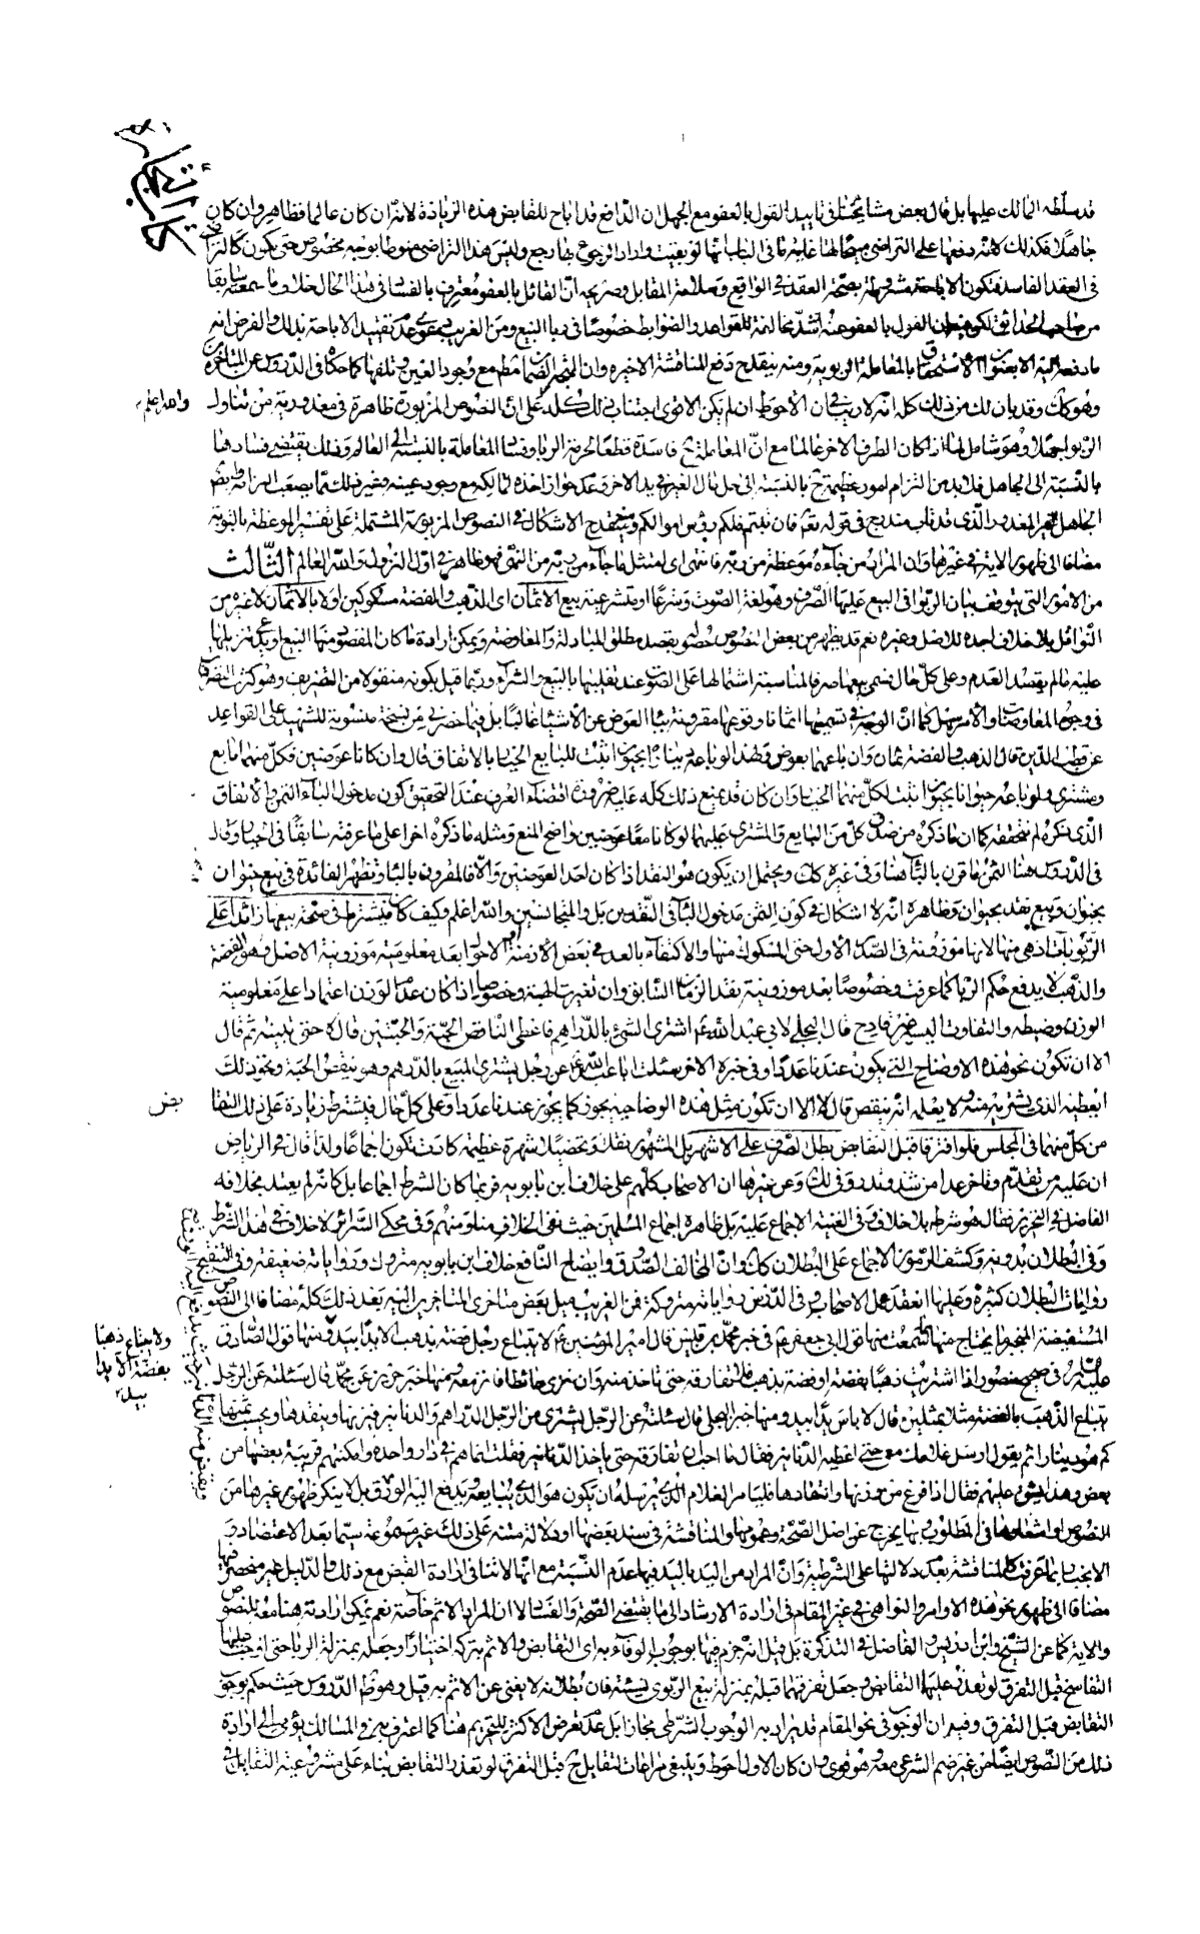 كتاب التجارة
قد سلّطه المالك عليها بل قال بعض مشايخنا في تأييد القول بالعفو مع الجهل ان الدافع قد اباح للقابض هذه الزيادة لانه ان كان عالما فظاهر وان كان
جاهلا فكذلك لانه دفعها على التراضي غاية ما في الباب انها لو بقيت واراد الرجوع بها رجع وليس هذا التراضي منوطا بوجه مخصوص حتى يكون كالتراضي
في العقد الفاسد فتكون الاباحة مشروطة بصحة العقد في الواقع و المقابل ان القائل بالعفو معترف بالفساد في هذا الحال خلاف ما سمعته سابقا
من صاحب الحدائق القول بالعفو عنه اشد مخالفة للقواعد والضوابط خصوصا في ربا البيع ومن الغريب دعوى عدم تقييد الاباحة بذلك والفرض انه
ما دفعه اليه الا بعنوان الاستحقاق بالمعاملة الربوية ومنه ينقدح دفع المناقشة الاخيرة وان المتجه الضمان مطلقا مع وجود العين وتلفها كما حكاه في الدروس عن المتأخرين
وهو كذلك وقد بان لك من ذلك كله انه لا ريب في ان الاحوط ان لم يكن الاقوى اجتناب ذلك كله على ان النصوص المزبورة ظاهرة في معذورية من تناول
الربا جهلا وهو شامل لما اذا كان الطرف الاخر عالما مع ان المعاملة ح فاسدة قطعا لحرمة الربا وفساد المعاملة بالنسبة الى العالم وذلك يقتضي فسادها
بالنسبة الى الجاهل فلا بد من التزام امور عظيمة ح بالنسبة الى حل مال الغير في يد الاخر وعدم جواز اخذه لمالكه مع وجود عينه وغير ذلك مما يصعب التزامه
الجاهل المعذور الذي قد تاب مندرج في قوله تعالى فان تبتم فلكم رؤس اموالكم و ينقدح الاشكال في النصوص المزبورة المشتملة على تفسير الموعظة بالتوبة
مضافا الى ظهور الاية في غيرها وان المراد من جاءه موعظة من ربه فانتهى اي امتثل ما جاءه من ربه من النهي فهو ظاهر في اول النزول والله العالم الثالث
من الامور التي يتوقف بيان الربا في البيع عليها الصرف وهو لغة الصوت وشرعا او متشرعية بيع الاثمان اي الذهب والفضة مسكوكين اولا بالاثمان لا غيره من
بلا خلاف اجده للاصل وغيره نعم قد يظهر من بعض النصوص حصوله بقصد مطلق المبادلة والمعاوضة ويمكن ارادة ما كان المقصود منها البيع او يدعى تنزيلها
عليه ما لم يقصد العدم وعلى كل حال فسمي بيعها صرفا لمناسبة اشتمالها على الصوت عند تقليبها بالبيع والشراء وربما قيل بكونه منقولا من التصريف وهو كثرة التصرفات
في وجوه المعاوضات والامر سهل كما ان الوجه في تسميتها اثمانا وقوعها مقرونة بباء العوض عن الاشياء غالبا بل فيما حضرني من نسخة منسوبة للشهيد على القواعد
عن قطب الدين قال الذهب والفضة ثمنان وان باعهما بعوض ولهذا لو باعه دينارا بحيوان ثبت للبايع الخيار بالاتفاق قال وان كانا عوضين فكل منهما بايع
ومشتري ولو باعه حيوانا بحيوان ثبت لكل منهما الخيار وان كان قد يمنع ذلك كله عليه ضرورة اقتضاء العرف عند التحقيق كون مدخول الباء الثمن والاتفاق
الذي ذكره لم نتحققه كما ان ما ذكره من صدق كل من البايع والمشتري عليهما لو كانا معا عوضين واضح المنع ومثله ما ذكره اخرا على ما عرفته سابقا في الخيار وقال
في الدروس هنا الثمن ما قرن بالباء هنا وفي غيره كذلك ويحتمل ان يكون هو النقد اذا كان احد العوضين والا فالمقرون بالباء وتظهر الفائدة في بيع حيوان
بحيوان وبيع نقد بحيوان وظاهره انه لا اشكال في كون الثمن مدخول الباء في النقدين بل والمتجانسين والله اعلم وكيف كان فيشترط في صحة بيعها زائدا على
الربويات اذ هي منها لانها موزونة في الصدر الاول حتى المسكوك منها والاكتفاء بالعد في بعض الازمنة او الاحوال بعد معلومية موزونية الاصل وهو الفضة
والذهب لا يدفع حكم الربا كما عرفت وخصوصا بعد موزونية نقد الزمان السابق وان تغيرت الهيئة وخصوصا اذا كان عدا لوزن اعتمادا على معلومية
الوزن وضبطه والتفاوت اليسير غير قادح قال البجلي لابي عبد الله ع اشتري الشيء بالدراهم فاعطي الناقص الحبة والحبتين قال لا حتى تبينه ثم قال
الا ان تكون نحو هذه الاوضاح التي يكون عندنا عددا وفي خبره الاخر سئلت ابا عبد الله ع عن رجل يشتري المبيع بالدرهم وهو ينقص الحبة ونحو ذلك
ايعطيه الذي يشتريه منه ولا يعلم انه ينقص قال لا الا ان تكون مثل هذه الوضاحية يجوز كما يجوز عندنا عددا وعلى كل حال فيشترط زيادة على ذلك التقابض
من كل منهما في المجلس فلو افترقا قبل التقابض بطل الصرف على الاشهر بل المشهور نقلا وتحصيلا شهرة عظيمة كادت تكون اجماعا ولذا قال في الرياض
ان عليه من تقدم وتأخر عدا من شذ وندر وفي لك وعن غيرها ان الاصحاب كلهم على خلاف ابن بابويه فربما كان الشرط اجماعا بل كانه لم يعتد بخلافه
الفاضل في التحرير فقال هو شرط بلا خلاف وفي الغنية الاجماع عليه بل ظاهره اجماع المسلمين حيث نفى الخلاف منا ومنهم وفي محكي السرائر لا خلاف في هذا الشرط
وفي البطلان بدونه وكشف الرموز الاجماع على البطلان كذلك وان المخالف الصدوق وايضاح النافع خلاف ابن بابويه متروك ورواياته ضعيفة وفي التنقيح
روايات البطلان كثيرة وعليها انعقد عمل الاصحاب وفي الدروس رواياته متروكة فمن الغريب ميل بعض متأخري المتأخرين اليه بعد ذلك كله مضافا الى النصوص
المستفيضة منها قول ابي جعفر ع في خبر محمد بن قيس قال امير المؤمنين ع لا يبتاع رجل فضة بذهب الا يدا بيد ومنها قول الصادق
عليه السلام في صحيح منصور اذا اشتريت ذهبا بفضة او فضة بذهب فلا تفارقه حتى تأخذ منه وان نزى حائطا فانز معه ومنها خبر حريز عن محمد قال سئلته عن الرجل
يبتاع الذهب بالفضة مثلا بمثلين قال لا باس يدا بيد ومنها خبر البجلي قال سئلته عن الرجل يشتري من الرجل الدراهم والدنانير فيزنها وينقدها ويحسب ثمنها
كم هو دينارا ثم يقول ارسل غلامك معي حتى اعطيه الدنانير فقال ما احب ان يفارقه حتى يأخذ الدنانير فقلت انما هم في دار واحدة وامكنتهم قريبة بعضها من
بعض وهذا يشق عليهم فقال اذا فرغ من وزنها وانتقادها فليأمر الغلام الذي يرسله ان يكون هو الذي يبايعه ويدفع اليه الورق بل لا ينكر ظهور غيرها من
النصوص في المطلوب بها يخرج عن اصل الصحة وعمومها والمناقشة في سند بعضها او دلالة متنه على ذلك غير مسموعة سيما بعد الاعتضاد و
الانجبار بما عرفت كالمناقشة بعدم دلالتها على الشرطية وان المراد من اليد باليد فيها عدم النسيئة مع انها لا تنافي ارادة القبض مع ذلك والدليل غير منحصر فيها
مضافا الى ظهور نحو هذه الاوامر والنواهي في غير المقام في ارادة الارشاد الى ما يقتضي الصحة والفساد لا ان المراد الاثم خاصة نعم يمكن ارادته هنا معه للنصوص
والاية كما عن الشيخ وابن ادريس والفاضل في التذكرة بل قيل انه جزم فيها بوجوب الوفاء به اي التقابض والاثم بتركه اختيارا وجعله بمنزلة الربا حتى اوجب عليهما
التفاسخ قبل التفرق لو تعذر عليها التقابض وجعل تفرقهما قبله بمنزلة بيع الربوي نسيئة فان بطلانه لا يغني عن الاثم به قيل وهو ظاهر الدروس حيث حكم بوجوب
التقابض قبل التفرق وفيه ان الوجوب في نحو المقام قد يراد به الوجوب الشرطي مجازا بل عدم تعرض الاكثر للتحريم هنا كما اعترف به في المسالك يؤمي الى ارادة
ذلك من النصوص ايضا من غير ضم الشرعي معه وهو قوي وان كان الاول احوط وينبغي مراعات التقايل ح قبل التفرق لو تعذر التقابض بناء على مشروعية التقايل في
والله اعلم
بض
ولا يبتاع ذهبا
بفضة الا يدا
بيد